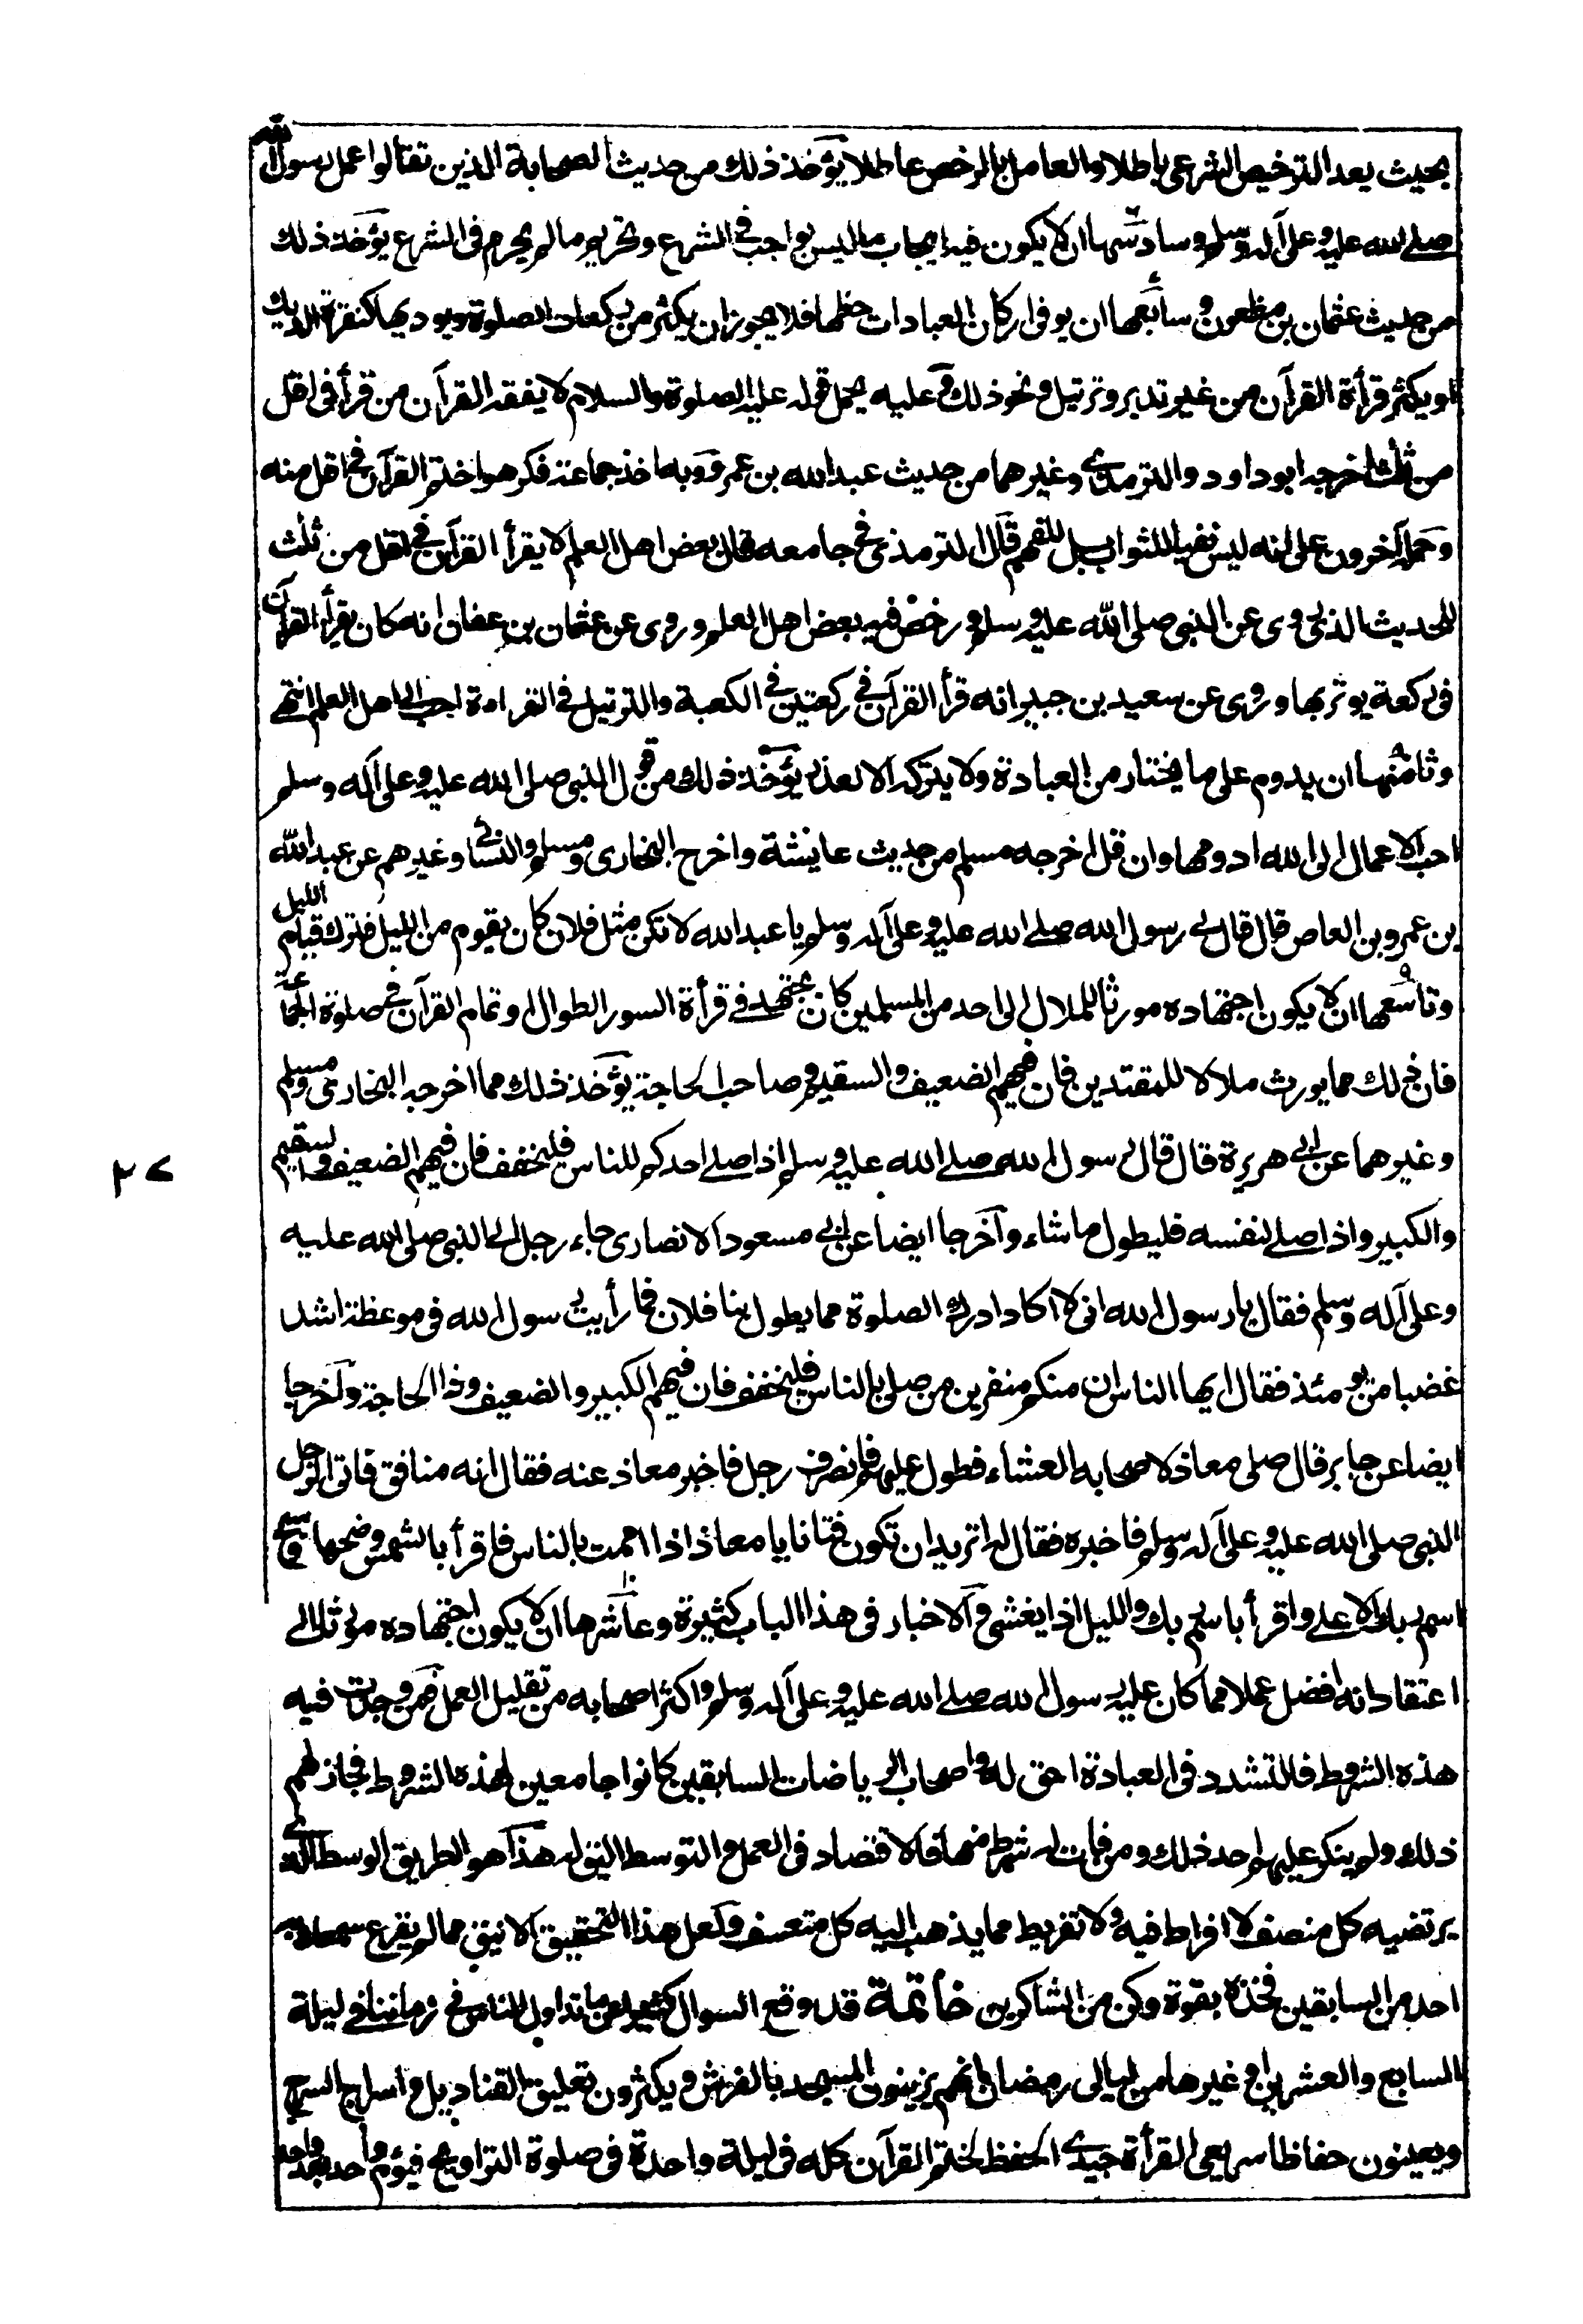 بحيث يعد الترخيص الشرعي باطلا والعامل بالرخص عاطلا يؤخذ ذلك من حديث الصحابة الذين تقالوا عمل رسول الله
صلے الله عليه وعلى آله وسلم وسادسها ان لا يكون فيه ايجاب ما ليس بواجب في الشرع وتحريم ما لم يحرم في الشرع يؤخذ ذلك
من حديث عثمان بن مظعون وسابعها ان يوفى اركان العبادات حظها فلا يجوز ان يكثر من ركعات الصلوة ويوديها كنقرة الديك
او يكثر قرأة القرآن من غير تدبر وترتيل ونحو ذلك وعليه يحمل قوله عليه الصلوة والسلام لا يفقه القرآن من قرأ في اقل
من ثلث اخرجه ابو داود والترمذي وغيرهما من حديث عبد الله بن عمرو وبه اخذ جماعة فكرهوا ختم القرآن في اقل منه
وحمله آخرون على انه ليس نفيا للثواب بل للفهم قال الترمذي في جامعه قال بعض اهل العلم لا يقرأ القرآن في اقل من ثلث
للحديث الذي روى عن النبي صلى الله عليه وسلم ورخص فيه بعض اهل العلم وروى عن عثمان بن عفان انه كان يقرأ القرآن
في ركعة يوتر بها وروى عن سعيد بن جبير انه قرأ القرآن في ركعتين في الكعبة والترتيل في القراءة احب الى اهل العلم انتهى
وثامنها ان يدوم على ما يختار من العبادة ولا يتركه الا لعذر يؤخذ ذلك من قول النبي صلى الله عليه وعلى آله وسلم
احب الاعمال الى الله ادومها وان قل اخرجه مسلم من حديث عايشة واخرج البخاري ومسلم والنسائي وغيرهم عن عبد الله
بن عمرو بن العاص قال قال لي رسول الله صلے الله عليه وعلى آله وسلم يا عبد الله لا تكن مثل فلان كان يقوم من الليل فترك قيام الليل
وتاسعها ان لا يكون اجتهاده مورثا لملال الى احد من المسلمين كان يجتهد في قرأة السور الطوال او تمام القرآن في صلوة الجماعة
فان ذلك مما يورث ملالا للمقتدين فان فيهم الضعيف والسقيم وصاحب الحاجة يؤخذ ذلك مما اخرجه البخاري ومسلم
وغيرهما عن ابي هريرة قال قال رسول الله صلے الله عليه وسلم اذا صلے احدكم للناس فليخفف فان فيهم الضعيف والسقيم
والكبير واذا صلے لنفسه فليطول ما شاء وآخرجا ايضا عن ابي مسعود الانصاري جاء رجل الى النبي صلى الله عليه
وعلى آله وسلم فقال يا رسول الله اني لا اكاد ادرك الصلوة مما يطول بنا فلان فما رأيت رسول الله في موعظة اشد
غضبا من يومئذ فقال ايها الناس ان منكم منفرين من صلى بالناس فليخفف فان فيهم الكبير والضعيف وذا الحاجة وآخرجا
ايضا عن جابر قال صلى معاذ لاصحابه العشاء فطول عليهم فانصرف رجل فاخبر معاذ عنه فقال انه منافق فاتى الرجل
النبي صلى الله عليه وعلى آله وسلم فاخبره فقال له اتريد ان تكون فتانا يا معاذ اذا اممت بالناس فاقرأ بالشمس وضحها وسبح
اسم ربك الاعلے واقرأ باسم ربك والليل اذا يغشى وآلاخبار في هذا الباب كثيرة وعاشرها ان لا يكون اجتهاده مؤثلا الى
اعتقاد انه افضل عملا مما كان عليه رسول الله صلے الله عليه وعلى آله وسلم واكثر اصحابه من تقليل العمل فمن وجدت فيه
هذه الشروط فالتشدد في العبادة احق له واصحاب الرياضات السابقين كانوا جامعين لهذه الشروط فجاز لهم
ذلك ولم ينكر عليهم احد ذلك ومن فات له شرط منها فالاقتصاد في العمل والتوسط اليق له هذا هو الطريق الوسط الذي
يرتضيه كل منصف لا افراط فيه ولا تفريط مما يذهب اليه كل متعسف ولعل هذا التحقيق الانيق مما لم يقرع
احد من السابقين فخذه بقوة وكن من الشاكرين خاتمة قد وقع السوال كثيرا عن ما تداول الناس في زماننا في ليلة
السابع والعشرين وغيرها من ليالي رمضان انهم يزينون المسجد بالفرش ويكثرون تعليق القناديل واسراج السرج
ويعينون حفاظا سريعى القرأة جيدى الحفظ لختم القرآن كله في ليلة واحدة في صلوة التراويح فيؤم واحد بعد واحد
٢٧